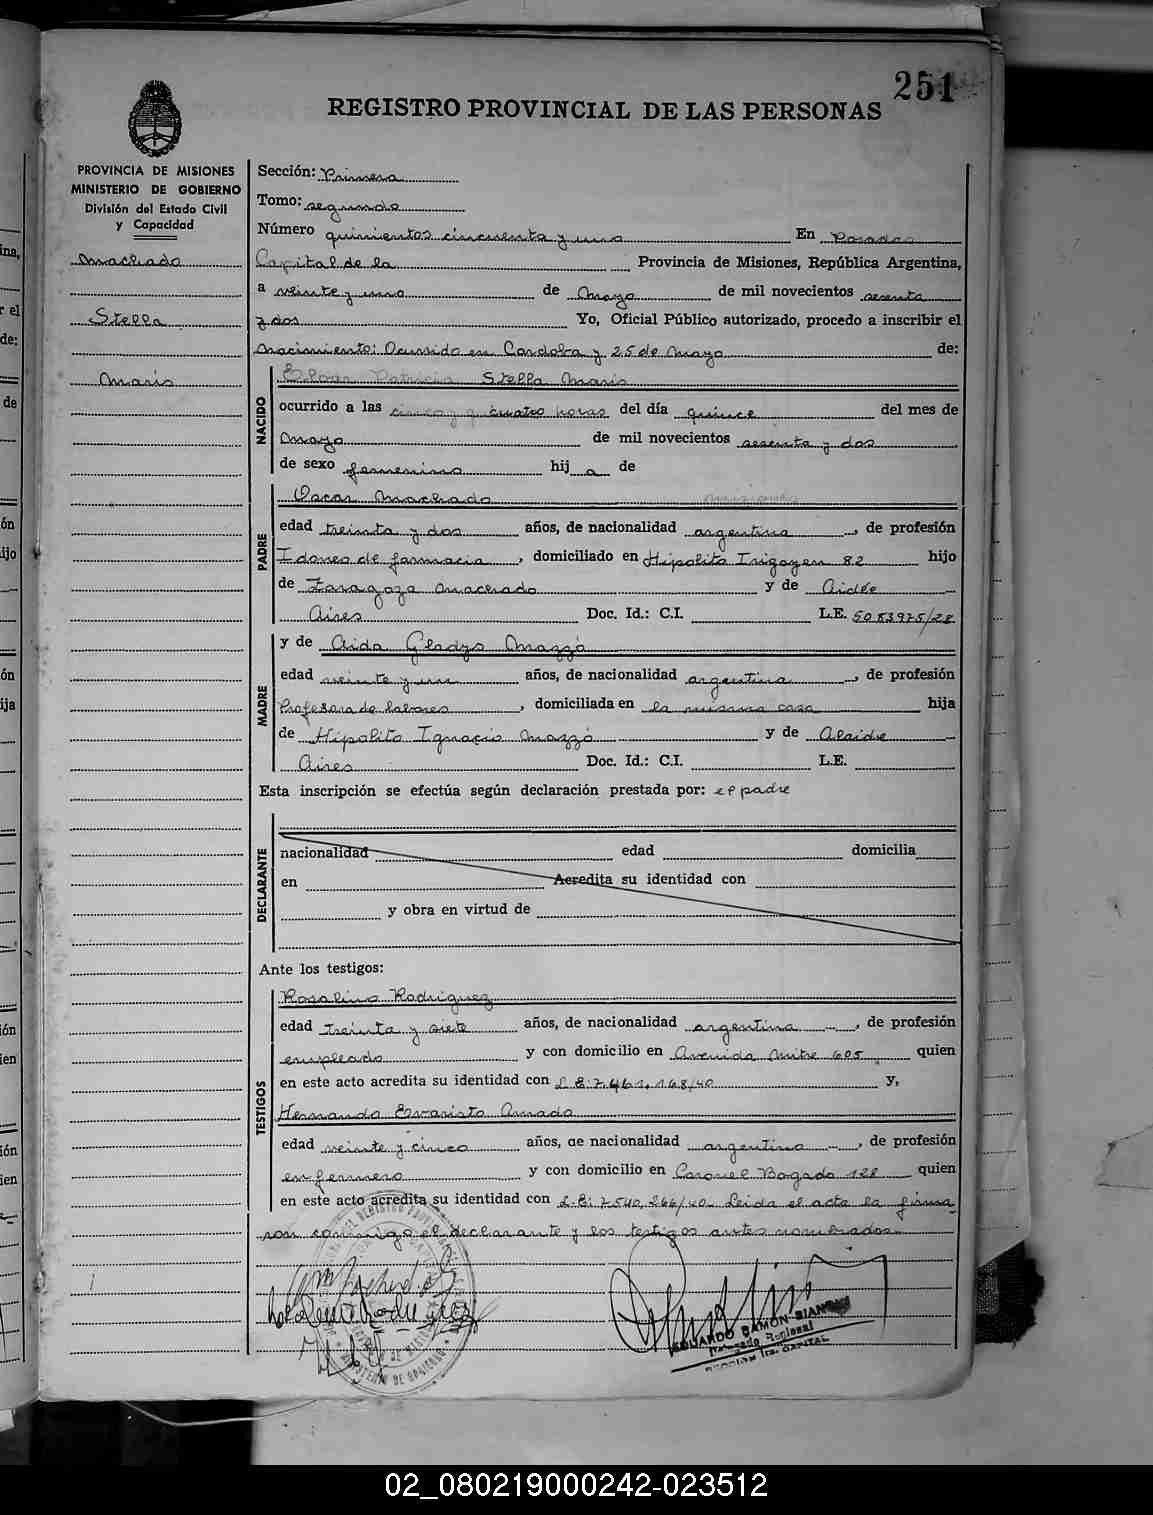 251
REGISTRO PROVINCIAL DE LAS PERSONAS
PROVINCIA DE MISIONES
MINISTERIO DE GOBIERNO
División del Estado Civil
y Capacidad
Machado
Stella
Maris
Sección: Primera
Tomo: segundo
Número quinientos cincuenta y uno En Posadas
Capital de la Provincia de Misiones, República Argentina,
a veinte y uno de Mayo de mil novecientos sesenta
y dos Yo, Oficial Público autorizado, procedo a inscribir el
nacimiento: Ocurrido en Cordoba y 25 de Mayo de:
NACIDO
Patricia Stella Maris
ocurrido a las cuatro horas del día quince del mes de
Mayo de mil novecientos sesenta y dos
de sexo femenino hij a de
PADRE
Oscar Machado
edad treinta y dos años, de nacionalidad argentina, de profesión
Idoneo de farmacia, domiciliado en Hipolito Irigoyen 82 hijo
de Zaragoza Machado y de Aidée
Aires Doc. Id.: C.I. L.E. 5083975/28
MADRE
y de Aida Gladys Mazzó
edad veinte y un años, de nacionalidad argentina, de profesión
Profesora de labores, domiciliada en la misma casa hija
de Hipolito Ignacio Mazzó y de Alaide
Aires Doc. Id.: C.I. L.E.
Esta inscripción se efectúa según declaración prestada por: el padre
DECLARANTE
nacionalidad edad domicilia
en Acredita su identidad con
y obra en virtud de
Ante los testigos:
TESTIGOS
Rosalino Rodriguez
edad treinta y siete años, de nacionalidad argentina, de profesión
empleado y con domicilio en Avenida Mitre 605 quien
en este acto acredita su identidad con L.E: 7.461.168/40 y,
Hernando Evaristo Amado
edad veinte y cinco años, de nacionalidad argentina, de profesión
enfermero y con domicilio en Coronel Bogado 128 quien
en este acto acredita su identidad con L.E: 7540.266/40. Leida el acta la firma
ron conmigo el declarante y los testigos antes nombrados.
EDUARDO RAMON
Delegado Regional
SECCION 1ra. CAPITAL
MINISTERIO DE GOBIERNO
02_080219000242-023512